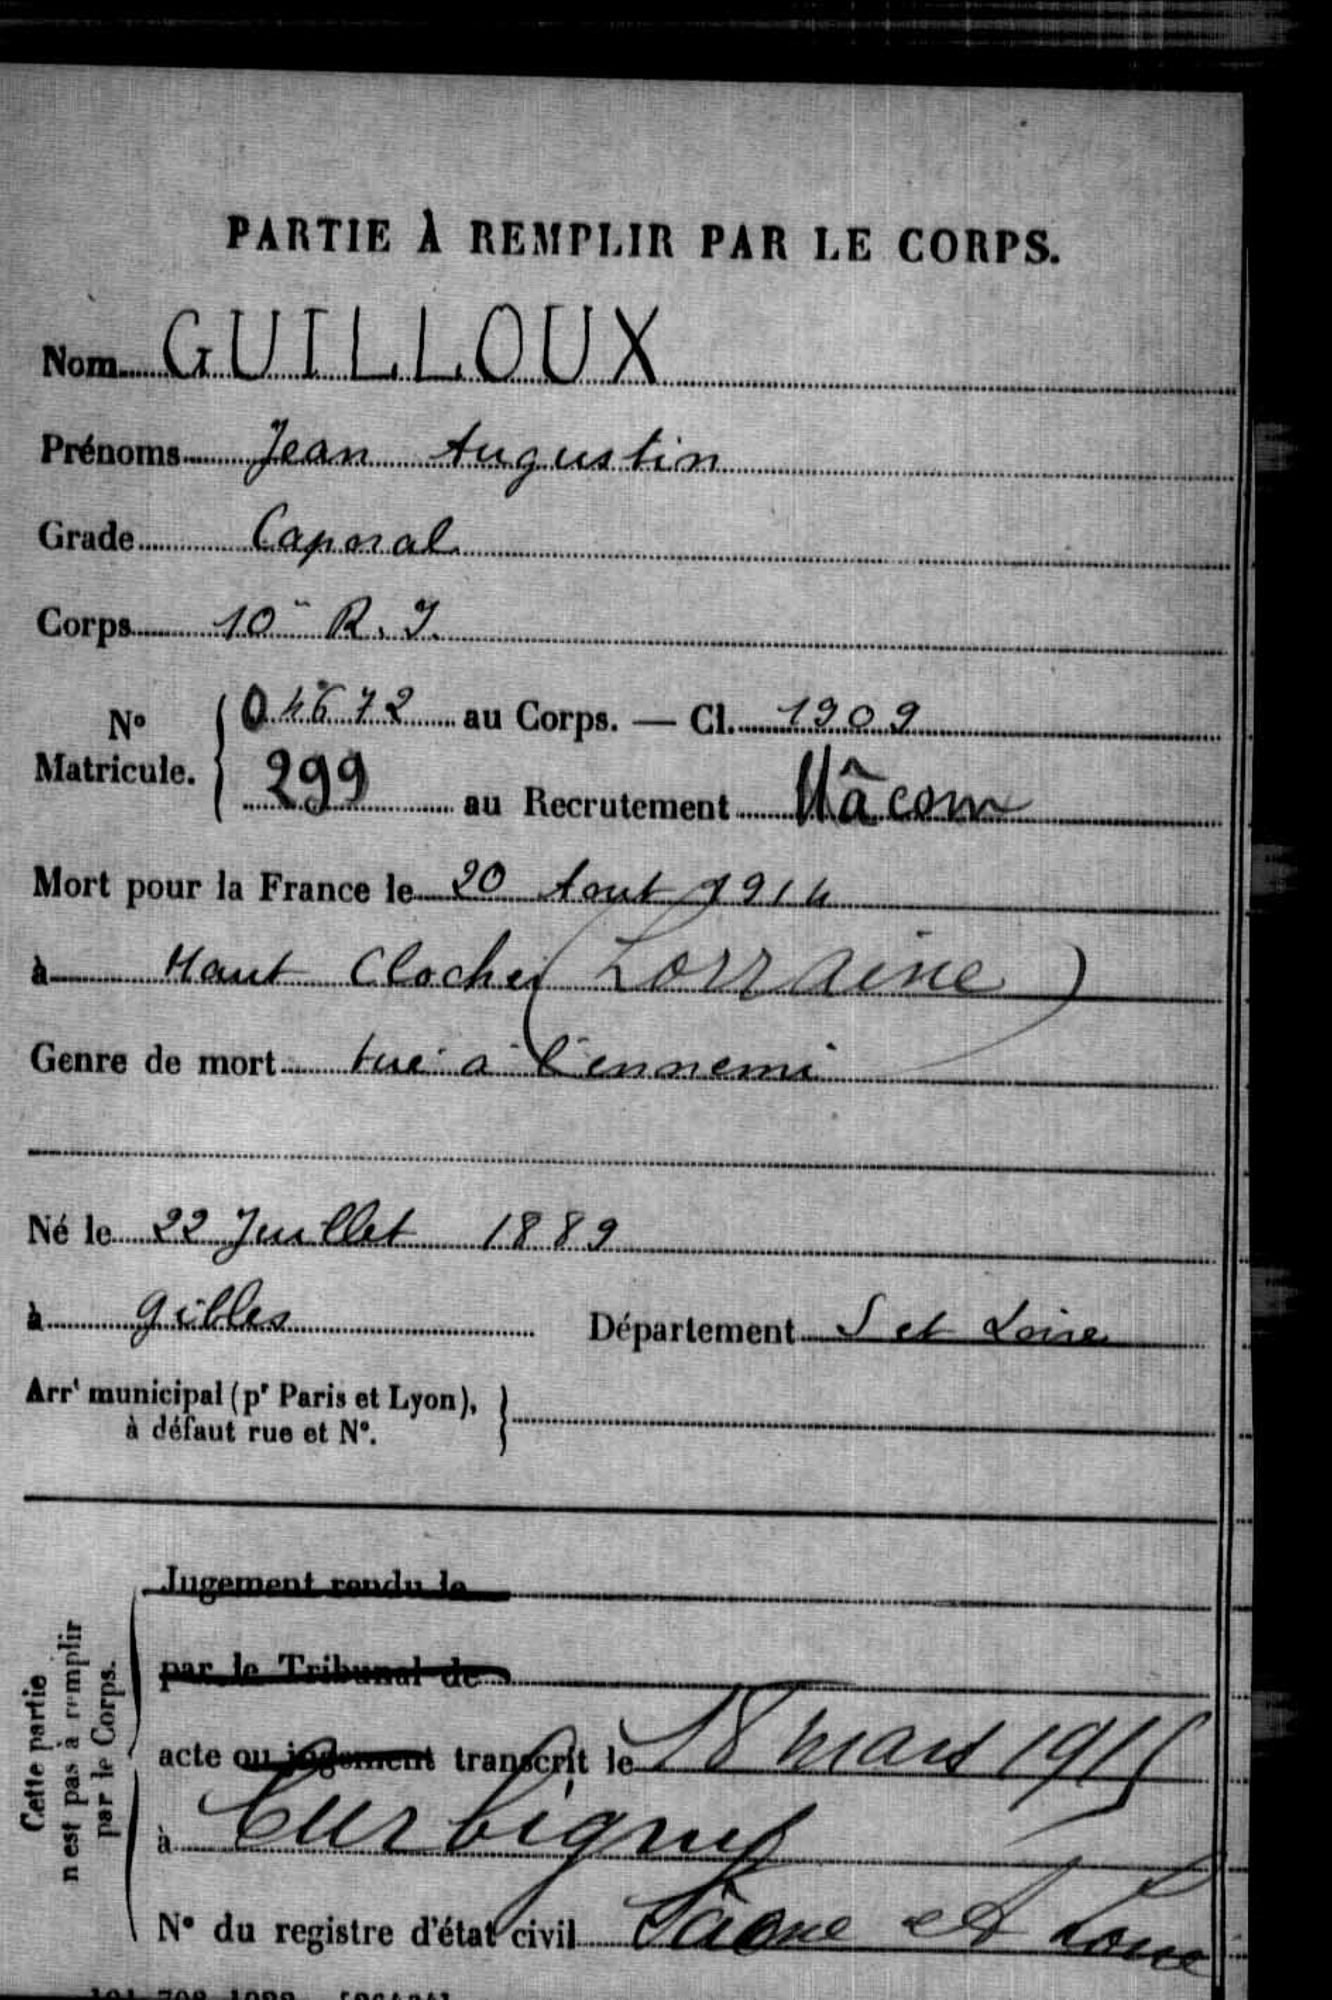 PARTIE À REMPLIR PAR LE CORPS.
Nom GUILLOUX
Prénoms Jean Augustin
Grade Caporal
Corps 10e R. I.
N° Matricule. { 04672 au Corps. — Cl. 1909
299 au Recrutement Mâcon
Mort pour la France le 20 Aout 1914
à Haut Clocher (Lorraine)
Genre de mort tué à l'ennemi
Né le 22 Juillet 1889
à Gibles Département S et Loire
Arrt municipal (pr Paris et Lyon),
à défaut rue et N°.
Cette partie
n'est pas à remplir
par le Corps.
Jugement rendu le
par le Tribunal de
acte ou jugement transcrit le 18 mars 1915
à Curbigny
N° du registre d'état civil Saône et Loire